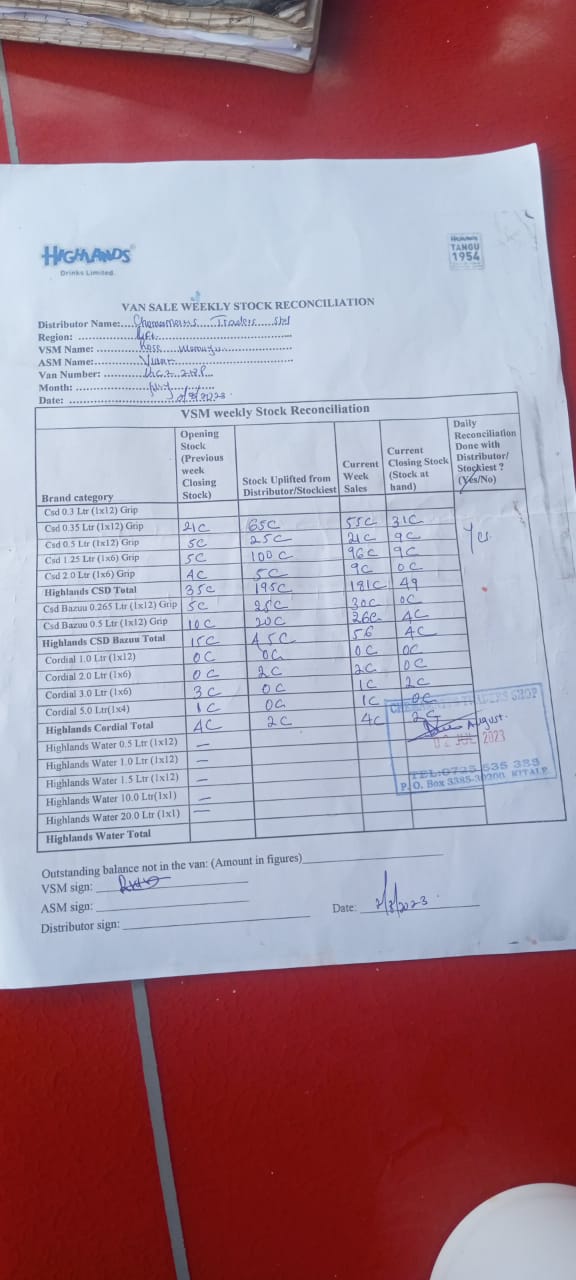 HIGHLANDS
Drinks Limited.
HIGHLANDS
TANGU
1954
VAN SALE WEEKLY STOCK RECONCILIATION
Distributor Name: Traders
Region:
VSM Name:
ASM Name:
Van Number:
Month: July
Date: 2023
VSM weekly Stock Reconciliation
Brand category Opening Stock (Previous week Closing Stock) Stock Uplifted from Distributor/Stockiest Current Week Sales Current Closing Stock (Stock at hand) Daily Reconciliation Done with Distributor/ Stockiest ? (Yes/No)
Csd 0.3 Ltr (1x12) Grip
Csd 0.35 Ltr (1x12) Grip 21C 65C 55C 31C Yes
Csd 0.5 Ltr (1x12) Grip 5C 25C 21C 9C
Csd 1.25 Ltr (1x6) Grip 5C 100C 96C 9C
Csd 2.0 Ltr (1x6) Grip 4C 5C 9C 0C
Highlands CSD Total 35C 195C 181C 49
Csd Bazuu 0.265 Ltr (1x12) Grip 5C 25C 30C 0C
Csd Bazuu 0.5 Ltr (1x12) Grip 10C 20C 26C 4C
Highlands CSD Bazuu Total 15C 45C 56 4C
Cordial 1.0 Ltr (1x12) 0C 0C 0C 0C
Cordial 2.0 Ltr (1x6) 0C 2C 2C 0C
Cordial 3.0 Ltr (1x6) 3C 0C 1C 2C
Cordial 5.0 Ltr(1x4) 1C 0C 1C 0C
Highlands Cordial Total 4C 2C 4C 2C
Highlands Water 0.5 Ltr (1x12) —
Highlands Water 1.0 Ltr (1x12) —
Highlands Water 1.5 Ltr (1x12) —
Highlands Water 10.0 Ltr(1x1) —
Highlands Water 20.0 Ltr (1x1) —
Highlands Water Total
TRADERS SHOP
August.
02 JUL 2023
TEL:0725 535 383
P.O. Box 3385-30200 KITALE
Outstanding balance not in the van: (Amount in figures)
VSM sign:
ASM sign:
Distributor sign:
Date: 2/8/2023